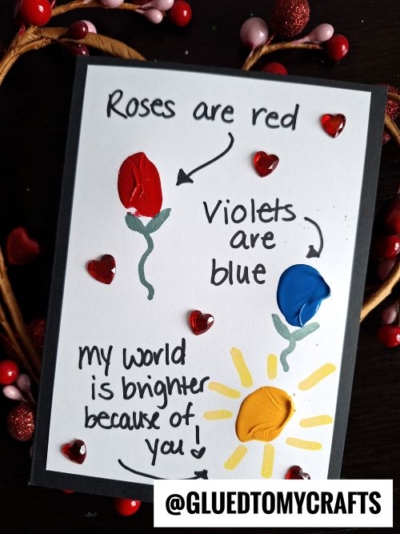 Roses are red
Violets
are
blue
my world
is brighter
because of
you!
@GLUEDTOMYCRAFTS